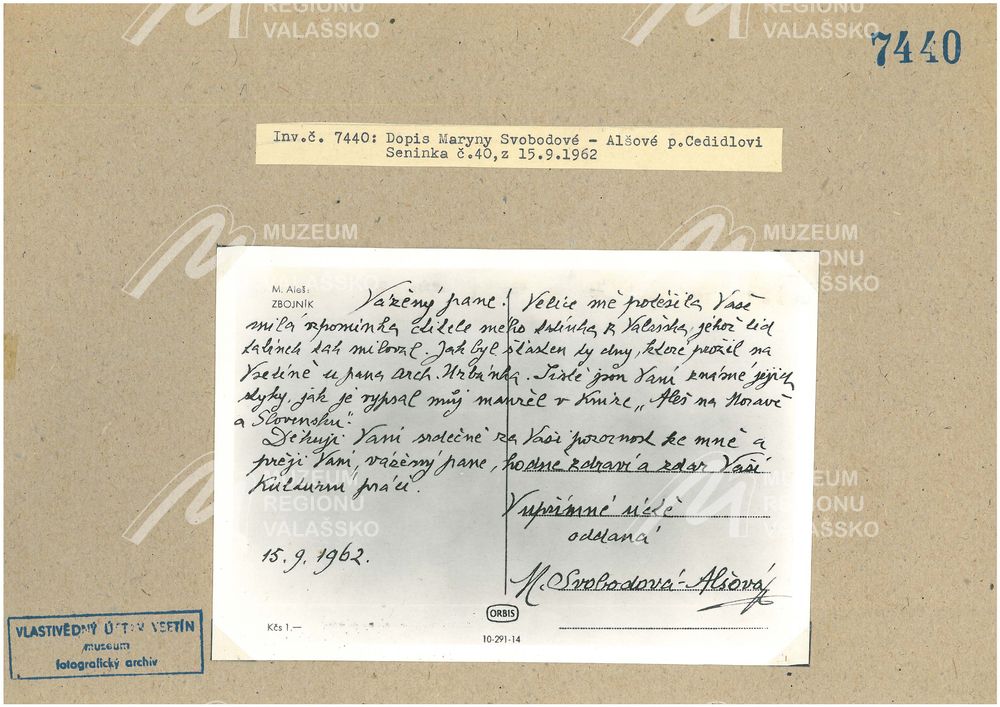 7440
Inv.č. 7440: Dopis Maryny Svobodové - Alšové p.Cedidlovi
Seninka č.40, z 15.9.1962
M. Aleš:
ZBOJNÍK
Vážený pane! Velice mě potěšila Vaše
milá vzpomínka ctitele mého tatínka z Valašska, jehož lid
tatínek tak miloval. Jak byl šťasten ty dny, které prožil na
Vsetíně u pana arch. Urbánka. Jistě jsou Vám známé jejich
styky, jak je vypsal můj manžel v knize „Aleš na Moravě
a Slovensku".
Děkuji Vám srdečně za Vaši pozornost ke mně a
přeji Vám, vážený pane, hodně zdraví a zdar Vaší
kulturní práci.
V upřímné úctě
oddaná
15.9.1962.
M. Svobodová-Alšová
Kčs 1.—
ORBIS
10-291-14
VLASTIVĚDNÝ ÚSTAV VSETÍN
muzeum
fotografický archiv
MUZEUM
REGIONU
VALAŠSKO